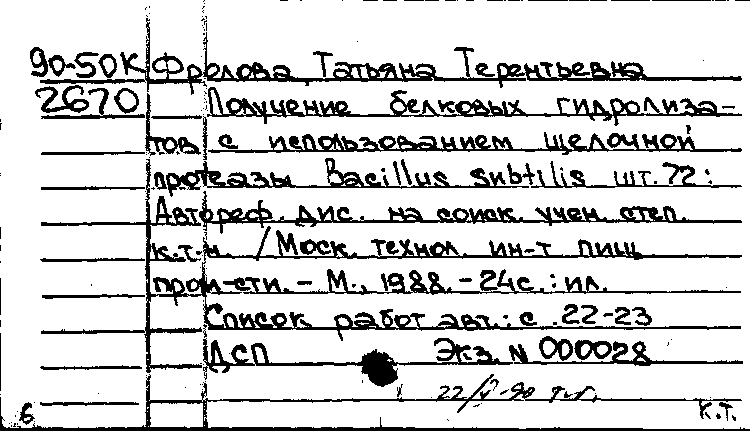 90-50К Фролова Татьяна Терентьевна
2670 Получение белковых гидролиза-
тов с использованием щелочной
протеазы Bacillus subtilis шт. 72:
Автореф. дис. на соиск. учен. степ.
к.т.н. / Моск. технол. ин-т пищ.
пром-сти. - М., 1988. - 24с.: ил.
Список работ авт.: с. 22-23
ДСП Экз. N 000028
22/V-90
6 К.Т.